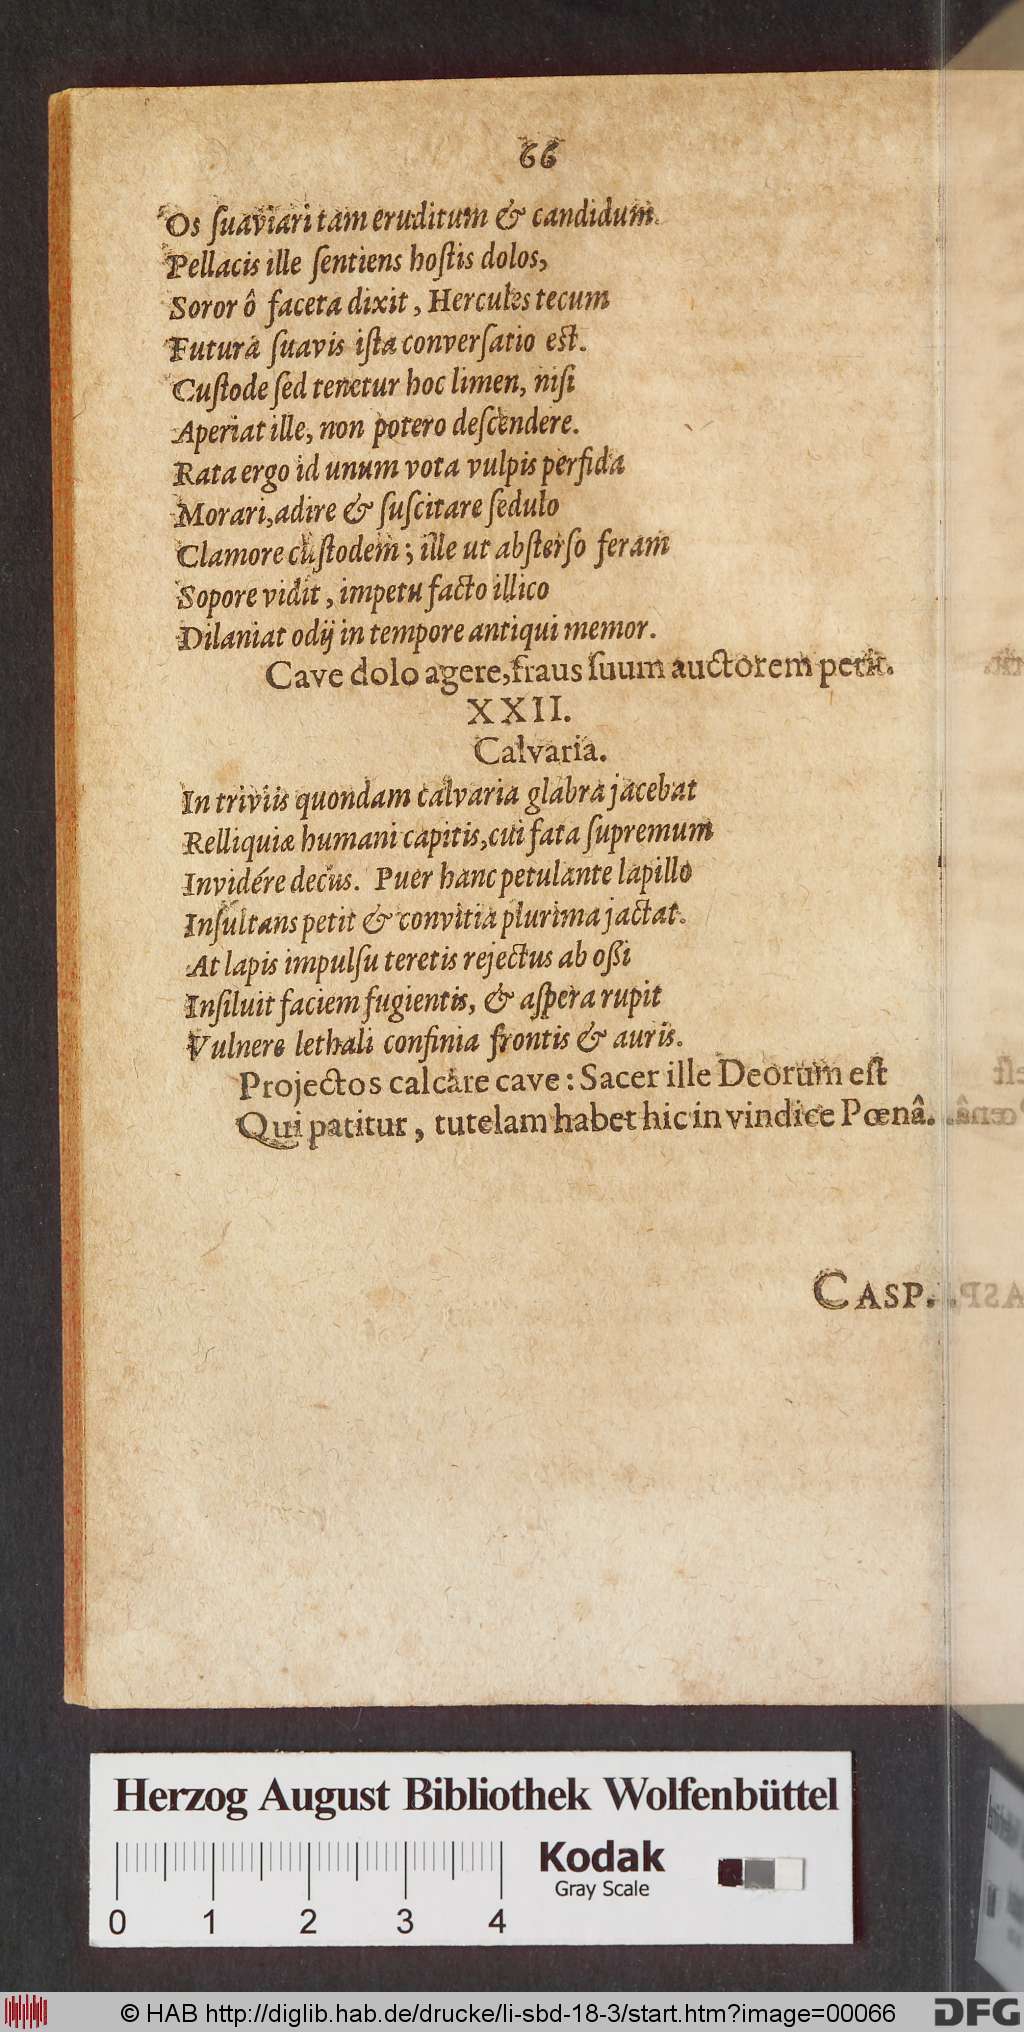 66
Os ſuaviari tam eruditum & candidum.
Pellacis ille ſentiens hoſtis dolos,
Soror ô faceta dixit, Hercules tecum
Futura ſuavis iſta converſatio eſt.
Cuſtode ſed tenetur hoc limen, niſi
Aperiat ille, non potero deſcendere.
Rata ergo id unum vota vulpis perfida
Morari, adire & ſuſcitare ſedulo
Clamore cuſtodem; ille ut abſterſo feram
Sopore vidit, impetu facto illico
Dilaniat odij in tempore antiqui memor.
Cave dolo agere, fraus ſuum auctorem petit.
XXII.
Calvaria.
In triviis quondam calvaria glabra jacebat
Relliquiæ humani capitis, cui fata ſupremum
Invidére decus. Puer hanc petulante lapillo
Inſultans petit & convitia plurima jactat.
At lapis impulſu teretis rejectus ab oſſi
Inſiluit faciem fugientis, & aſpera rupit
Vulnere lethali confinia frontis & auris.
Projectos calcare cave: Sacer ille Deorum eſt
Qui patitur, tutelam habet hic in vindice Pœnâ.
CASP.
Herzog August Bibliothek Wolfenbüttel
Kodak
Gray Scale
0 1 2 3 4
© HAB http://diglib.hab.de/drucke/li-sbd-18-3/start.htm?image=00066
DFG